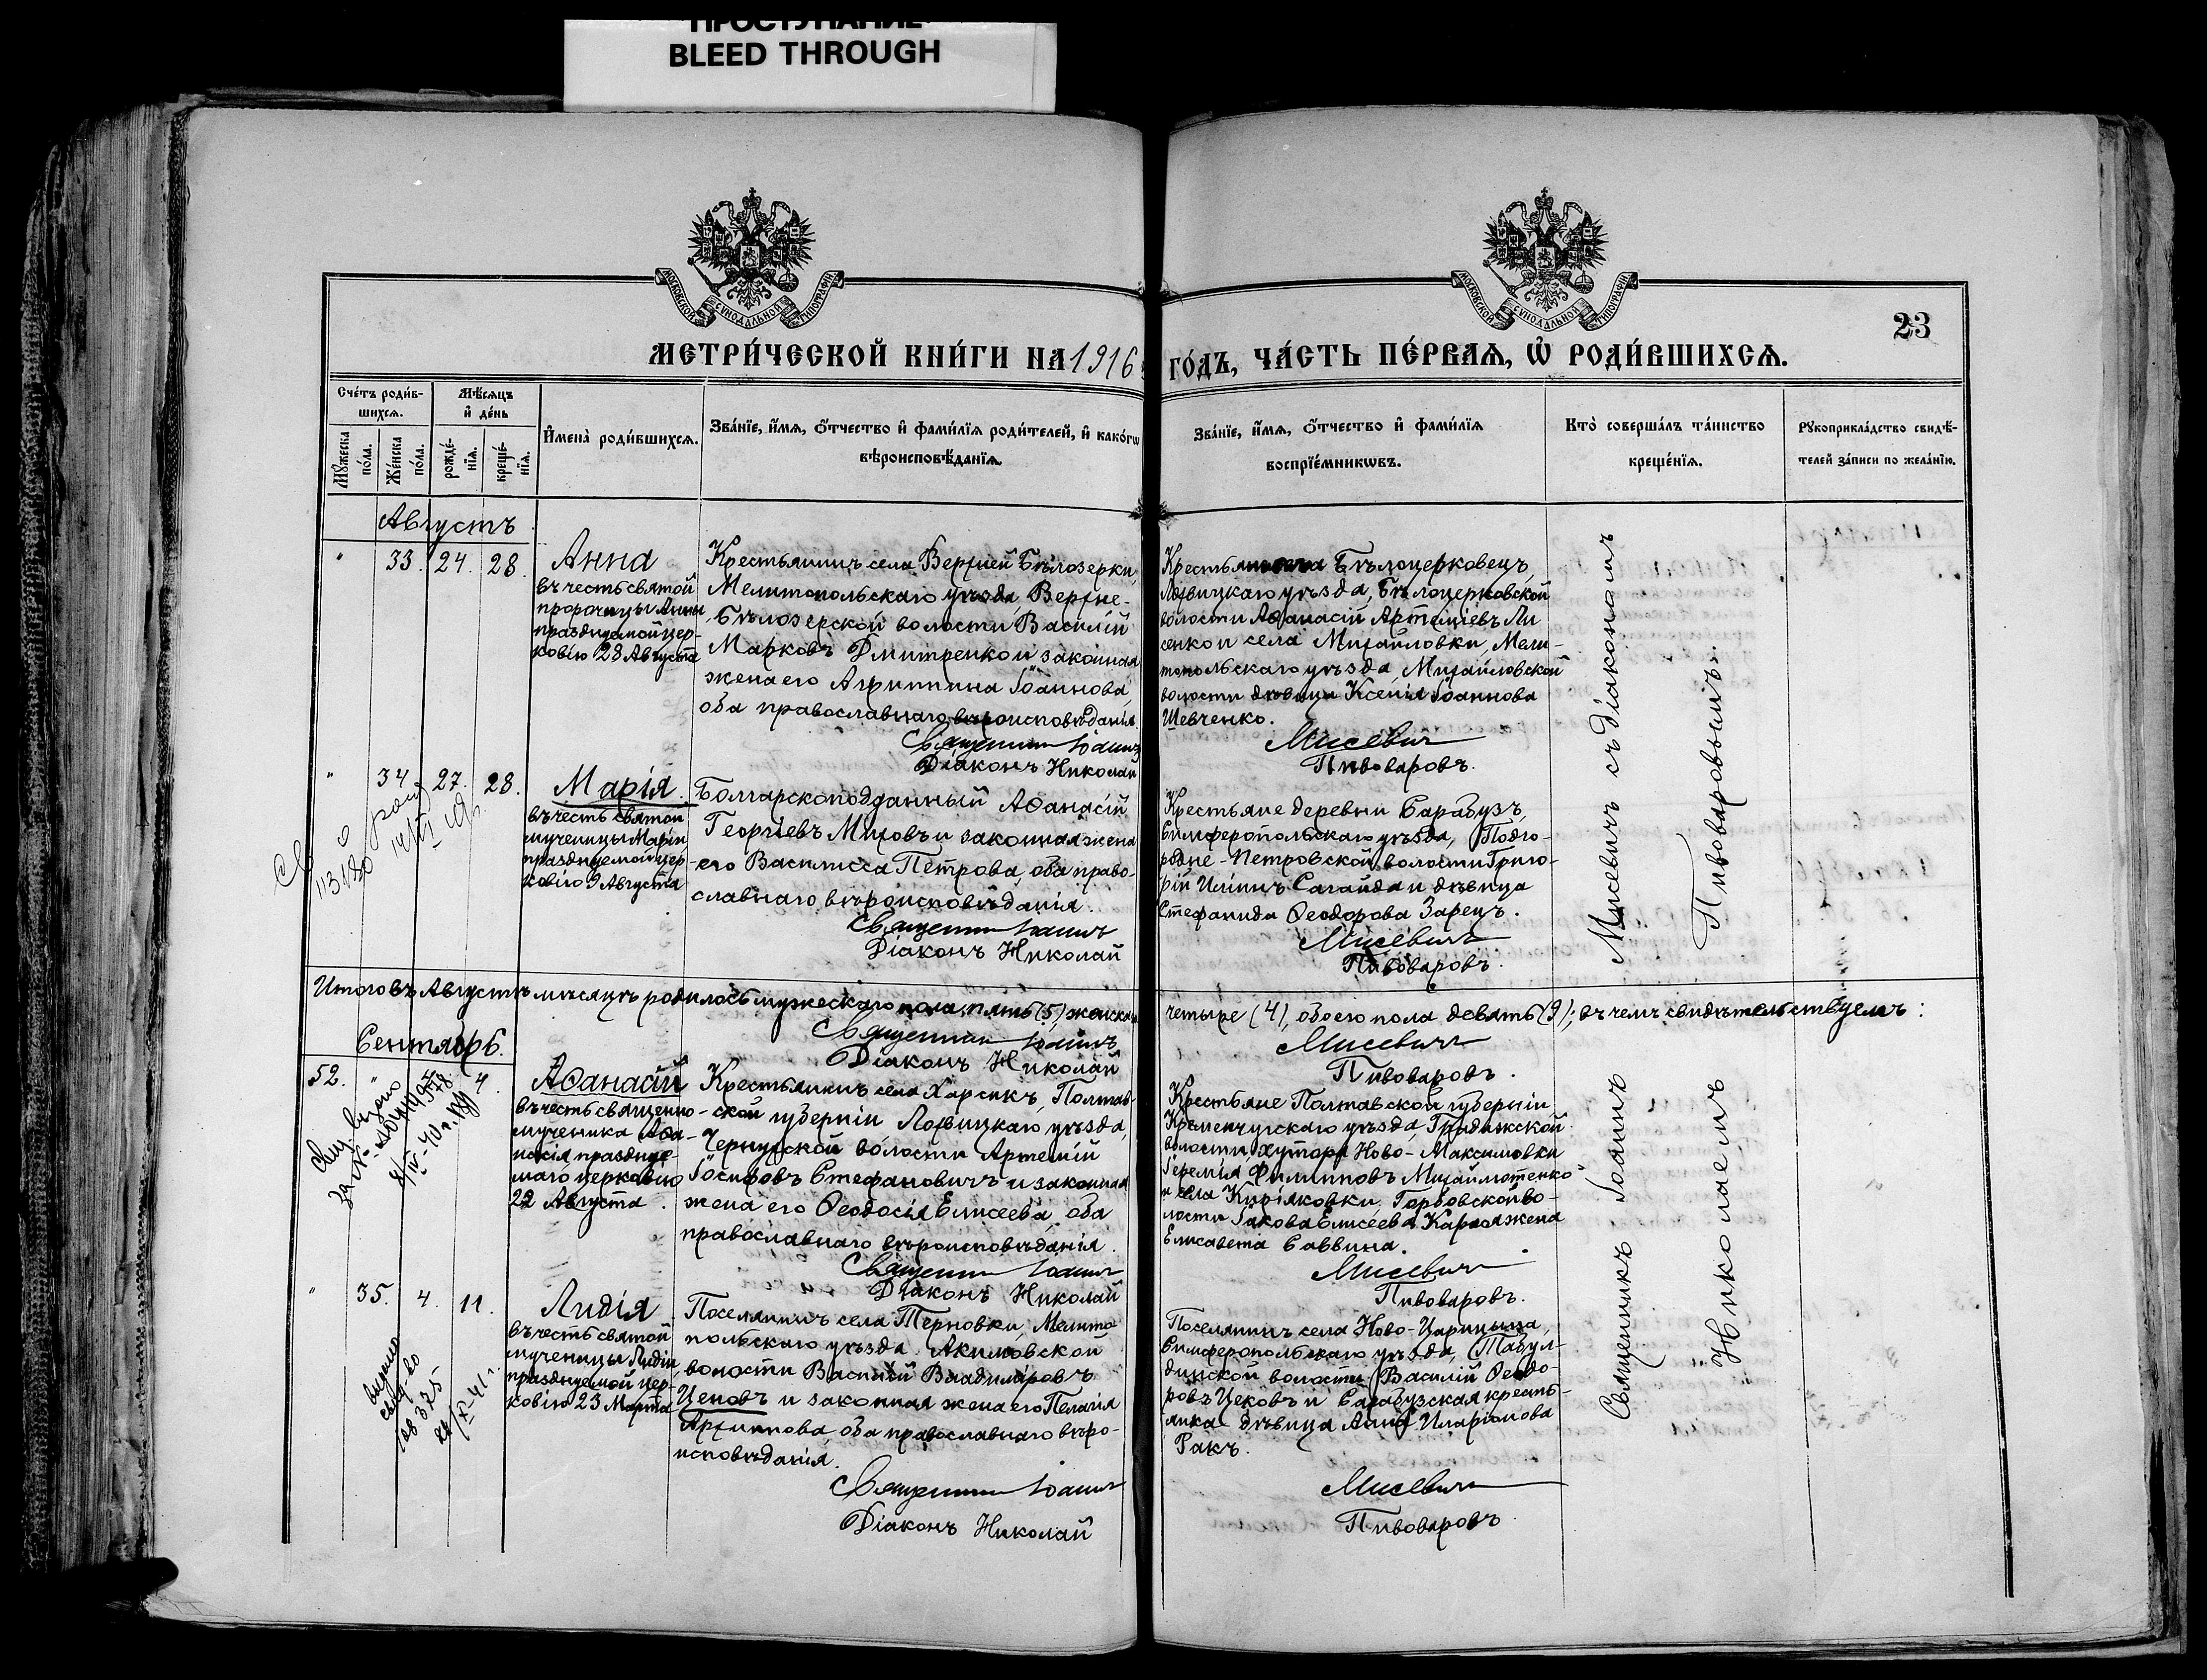 ПРОСТУПАНИЕ
BLEED THROUGH
МОСКОВСКОЙ СѴНОДАЛЬНОЙ ТИПОГРАФІИ
МОСКОВСКОЙ СѴНОДАЛЬНОЙ ТИПОГРАФІИ
23
МЕТРИ́ЧЕСКОЙ КНИ́ГИ НА 1916 ГО́ДЪ, ЧА́СТЬ ПЕ́РВАѦ, Ѽ РОДИ́ВШИХСѦ.
Сче́тъ роди́в-
шихсѧ.
Мѣ́сѧцъ
и҆ де́нь
Мꙋжеска
по́ла.
Же́нска
по́ла.
рожде́-
нїѧ.
креще́-
нїѧ.
И҆мена̀ роди́вшихсѧ.
Зва́нїе, и҆́мѧ, ѻ҆́тчество и҆ фами́лїѧ роди́телей, и҆ како́гѡ
вѣроисповѣ́данїѧ.
Зва́нїе, и҆́мѧ, ѻ҆́тчество и҆ фами́лїѧ
воспрїе́мникѡвъ.
Кто̀ соверша́лъ та́инство
креще́нїѧ.
Рꙋкоприкла́дство свидѣ́-
телей за́писи по жела́нїю.
Августъ
" 33. 24. 28.
Анна
въ честь святой
пророчицы Анны
празднуемой цер-
ковію 28 Августа
Крестьянинъ села Верхней Бѣлозерки,
Мелитопольскаго уѣзда, Верхне-
Бѣлозерской волости Василій
Марковъ Дмитренко и законная
жена его Агриппина Іоаннова,
оба православнаго вѣроисповѣданія.
Священникъ Іоаннъ
Діаконъ Николай
Бѣлоцерковецъ,
Лохвицкаго уѣзда, Бѣлоцерковской
волости Аѳанасій Артеміевъ Ли
сенко и села Михайловки, Мели-
топольскаго уѣзда, Михайловской
волости дѣвица Ксенія Іоаннова
Шевченко.
Мисевичъ
Пивоваровъ.
" 34 27. 28.
Марія.
въ честь святой
мученицы Маріи
празднуемой цер
ковію 9 Августа
Болгарскоподданный Аѳанасій
Георгіевъ Мицовъ и законная жена
его Василисса Петрова, оба право-
славнаго вѣроисповѣданія.
Священникъ Іоаннъ
Діаконъ Николай
Крестьяне деревни Сарабузъ,
Симферопольскаго уѣзда, Подго-
родне-Петровской волости Григо-
рій Иліинъ Сагайда и дѣвица
Стефанида Ѳеодорова Зарецъ.
Мисевичъ
Пивоваровъ.
Итого въ Августѣ мѣсяцѣ родилось мужескаго пола пять (5), женска
четыре (4), обоего пола девять (9); въ чемъ свидѣтельствуемъ:
Священникъ Іоаннъ
Діаконъ Николай
Мисевичъ
Пивоваровъ.
Сентябрь.
52. " 4.
Аѳанасій
въ честь священно-
мученика Аѳа-
насія празднуе-
маго церковію
22 Августа.
Крестьянинъ села Харсикъ, Полтав-
ской губерніи Лохвицкаго уѣзда,
Чернухской волости Артемій
Іосифовъ Стефановичъ и законная
жена его Ѳеодосія Елисеева, оба
православнаго вѣроисповѣданія.
Священникъ Іоаннъ
Діаконъ Николай
Крестьяне Полтавской губерніи,
Кременчугскаго уѣзда, Градижской
волости, хутора Ново-Максимовки
Іеремія Филипповъ Михайлютенко
и села Киріяковки, Горбовской во-
лости Іакова Елисеева жена
Елисавета Саввина.
Мисевичъ
Пивоваровъ.
" 35. 4. 11.
Лидія
въ честь святой
мученицы Лидіи,
празднуемой цер-
ковію 23 Марта
Поселянинъ села Терновки, Мелито
польскаго уѣзда Акимовской
волости Василій Владиміровъ
Ценовъ и законная жена его Пелагія
Архиппова, оба православнаго вѣро-
исповѣданія.
Священникъ Іоаннъ
Діаконъ Николай
Поселянинъ села Ново-Царицына,
Симферопольскаго уѣзда, Табул-
динской волости Василій Ѳеодо-
ровъ Цековъ и Сарабузская кресть-
янка дѣвица Анна Иларіонова
Ракъ.
Мисевичъ
Пивоваровъ.
Священникъ Іоаннъ Мисевичъ съ діакономъ
Николаемъ Пивоваровымъ.